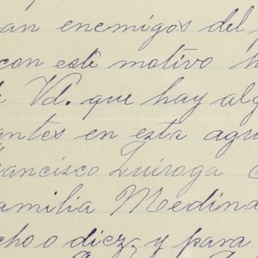 an enemigos del
con este motivo
Vd. que hay alg
antes en esta agu
rancisco Quiroga
amilia Medina
cho o diez, y para